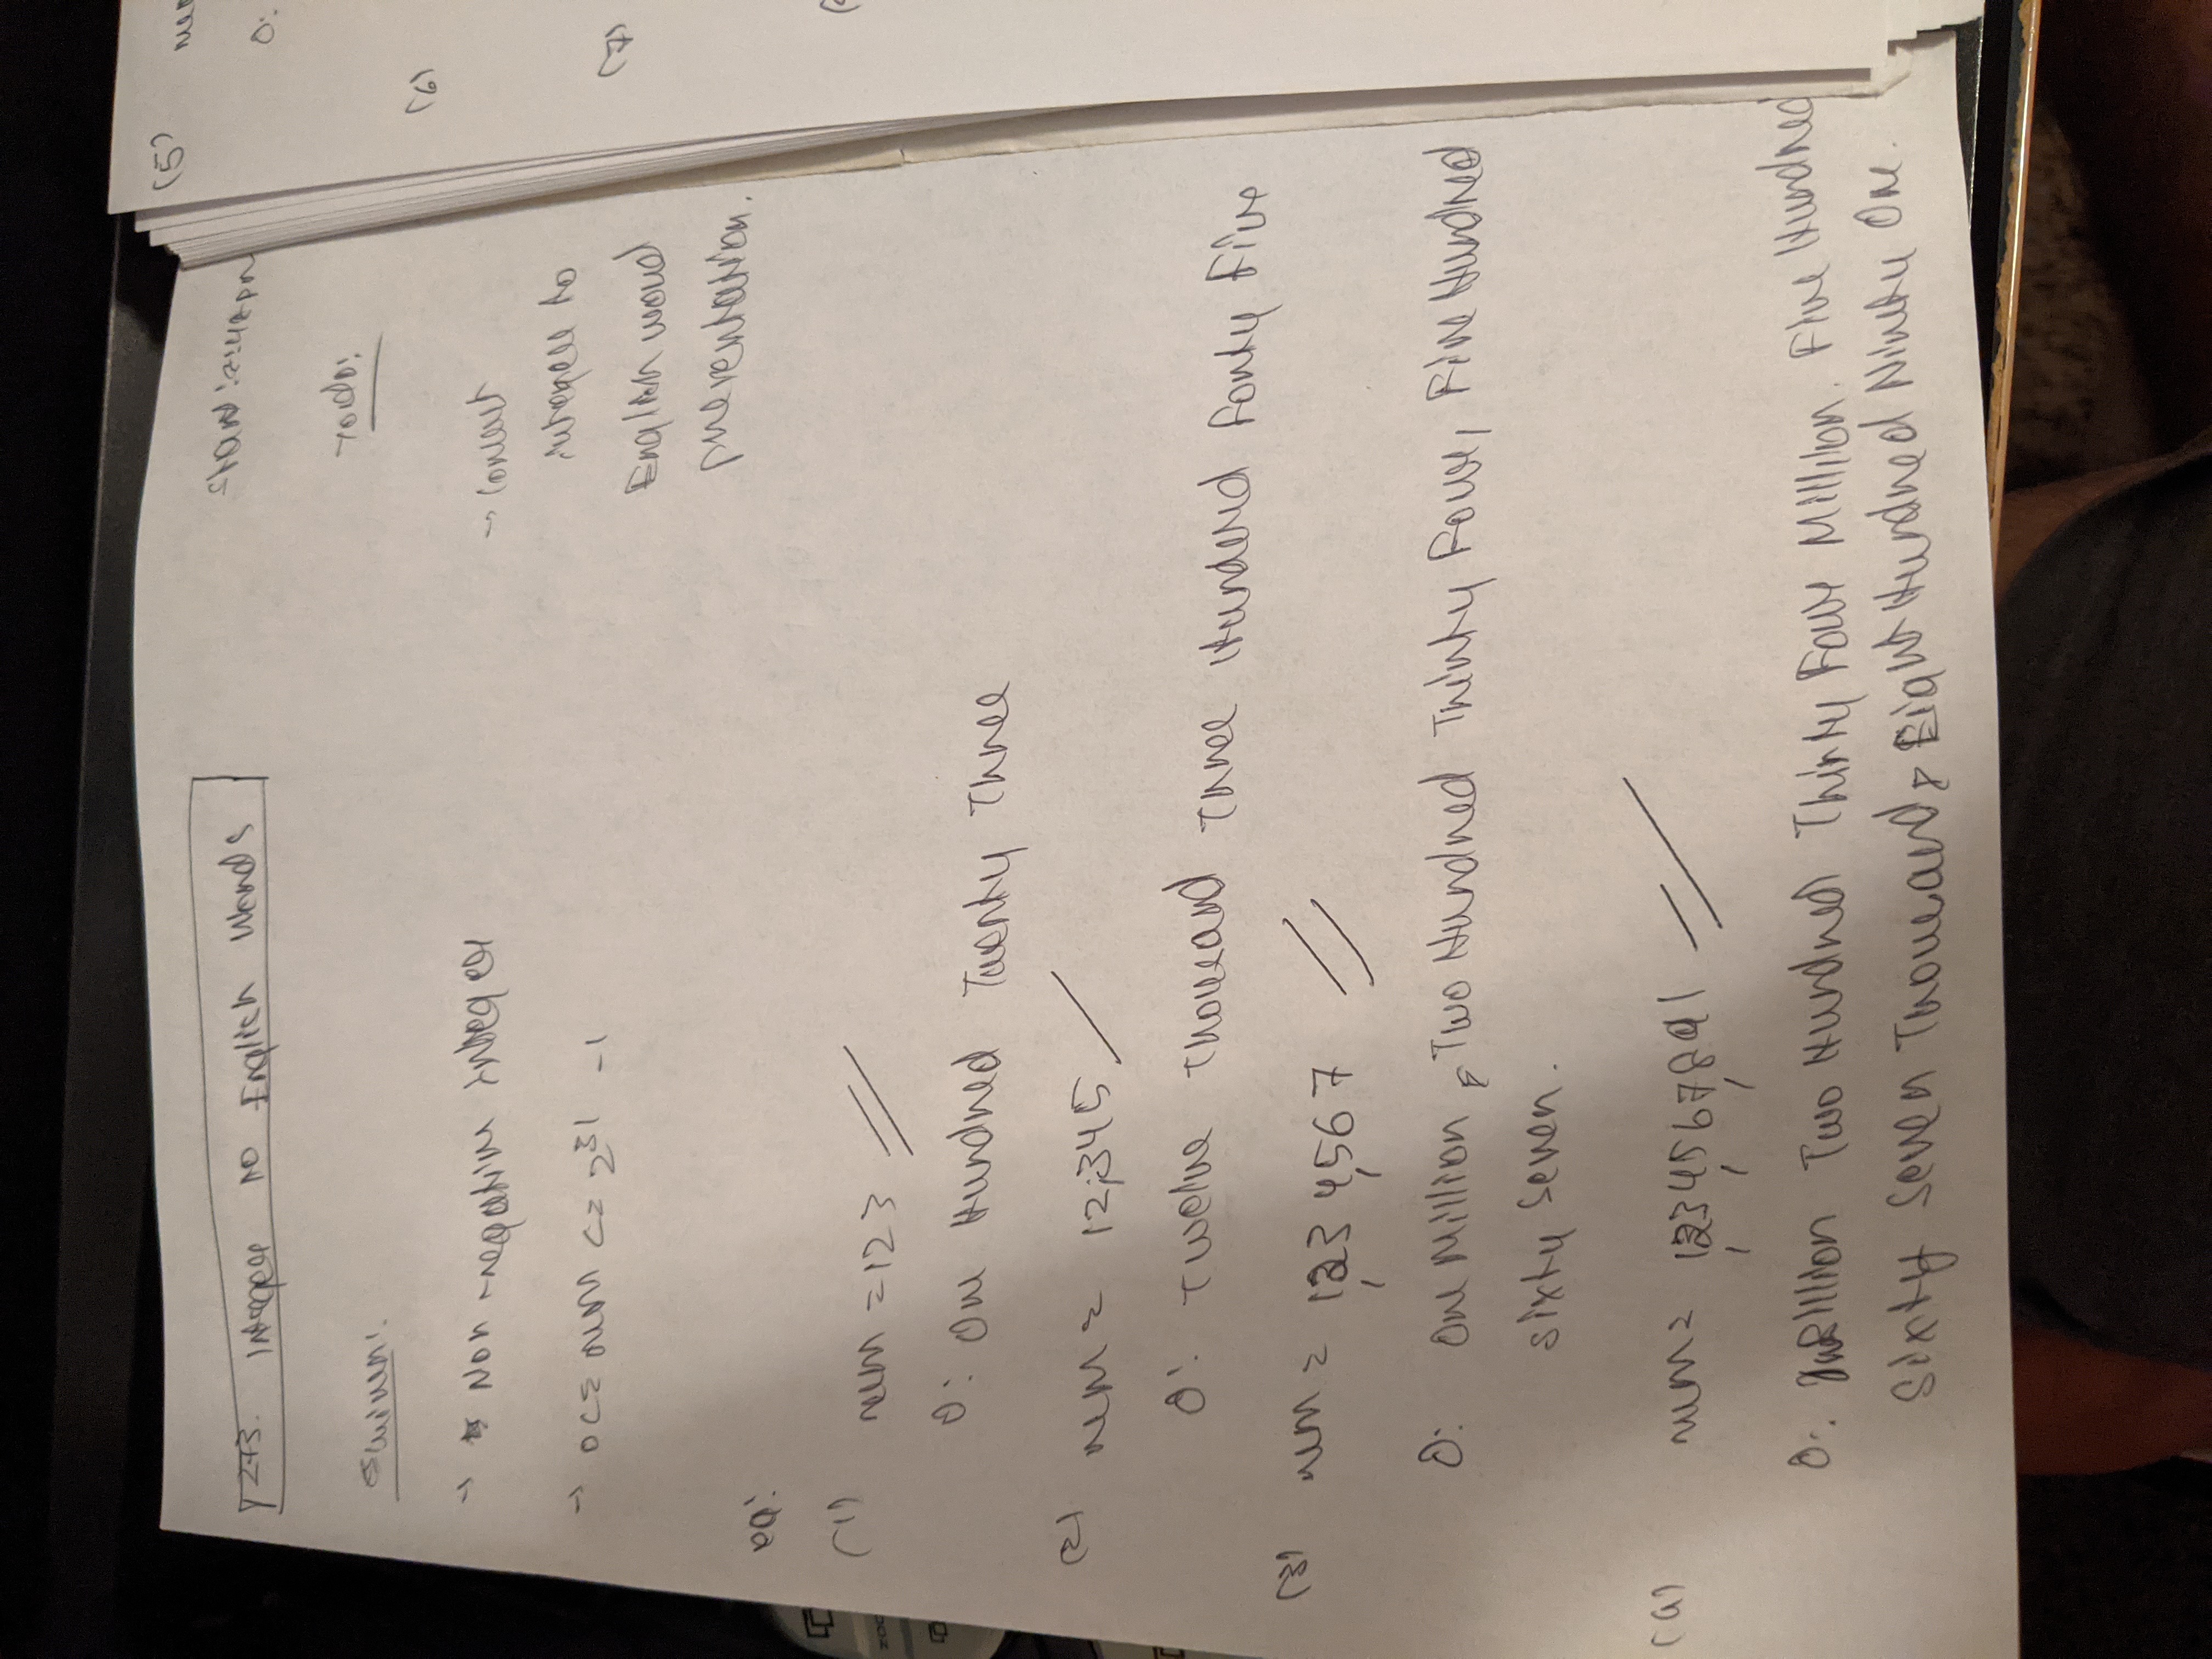 273. Integer to English Words
Start: 2:42pm
Given:
Todo:
→ Non-negative integer
→ 0 <= num <= 2^31 - 1
→ convert
integer to
English word
presentation.
eg:
(1) num = 123
O: One Hundred Twenty Three
(2) num = 12,345
O: Twelve Thousand Three Hundered Forty Five
(3) num = 1,234,567
O: One Million, Two Hundred Thirty Four, Five Hundred
Sixty Seven.
(4) num = 1,234,567,891
O: Billion Two Hundred Thirty Four Million. Five Hundred
Sixty Seven Thousand, Eight Hundred Ninety One.
(5)
O:
(6)
(7)